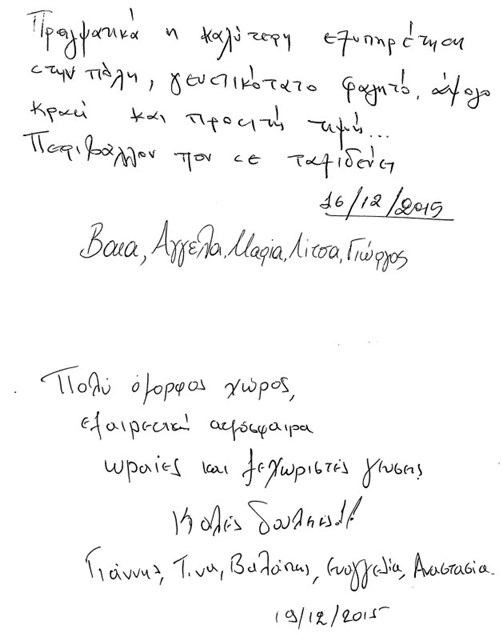 Πραγματικά η καλύτερη εξυπηρέτηση
στην πόλη, γευστικότατο φαγητό, άψογο
κρασί και προσιτή τιμή...
Περιβάλλον που σε ταξιδεύει
16/12/2015
Βάσα, Αγγέλα, Μαρία, Λίτσα, Γιώργος
Πολύ όμορφος χώρος,
εξαιρετική ατμόσφαιρα
ωραίες και ξεχωριστές γεύσεις
Καλές δουλειές!!
Γιάννης, Τίνα, Βαλάντης, Ευαγγελία, Αναστασία.
19/12/2015